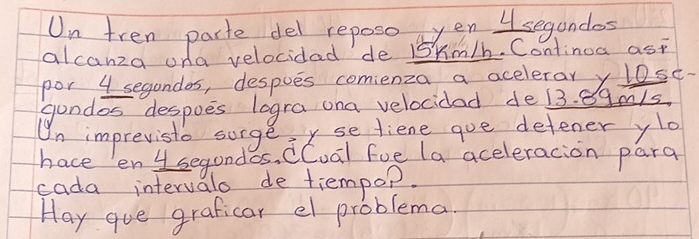 Un tren parte del reposo y en 4 segundos
alcanza una velocidad de 15km/h. Continoa así
por 4 segundos, después comienza a acelerar y 10 se-
gundos después logra una velocidad de 13.89m/s.
Un imprevisto surge, y se tiene que detener y lo
hace en 4 segundos. ¿Cuál fue la aceleración para
cada intervalo de tiempo?.
Hay que graficar el problema.